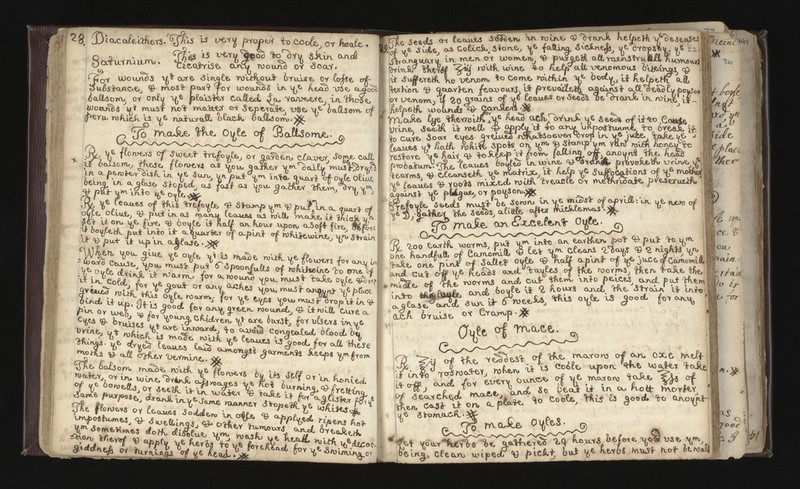 28. Diacaleithers. This is very proper to Coole, or heale.
Saturnium. This is very good to dry skin and
Cicatrise any wound or Scar.
For wounds yt are single without bruise or losse of
Substance, & most part for wounds in ye head use a good
ballsom, or only ye plaister called Ja. raveere, in those
wounds yt must not meter or Seperate, use ye ballsom of
peru which is ye naturall black ballsom.
To make the Oyle of Ballsome.
Rx ye flowers of Sweet trefoyle, or garden claver, some call
it balsom, these flowers as you gather ym daily must dry
in a pewter dish in ye sun, yn put ym into quart of oyle Olive
being in a glase stoped, as fast as you gather them, dry ym
& put ym into ye oyle.
Rx ye leaves of this trefoyle & Stamp ym & put in a quart of
oyle olive, & put in as many leaves as will make it thick yn
set it on ye fire & boyle it half an hour upon a Soft fire, before
it boyleth put into it a quarter of a pint of whitewine, yn strain
it & put it up in a glase.
When you give ye oyle yt is made with ye flowers for any in
ward cause, you must put 6 spoonfulls of whitwine to one of
ye oyle drink it warm for a wound you must take oyle &
it in Cold, for ye gout or any aches you must anoynt ye place
greived with this oyle warm, for ye eyes you must drop it in &
bind it up. It is good for any green wound, & it will cure a
pin or web, & for young Children yt are burst, for ulsers in ye
eyes & bruises yt are inward, to avoid congealed blood by
urine, yt which is made with ye leaves is good for all these
things. ye dryed leaves laid amongst garments keeps ym from
moths & all other vermine.
The balsom made with ye flowers by its self or in honied
water, or in wine drank asswages ye hot burning & fretting
of ye bowells, or seeth it in water & take it for a glister for ye
same purpose, drank in ye same manner stopeth ye whites
The flowers or leaves Sodden in oyle & applyed ripens hot
impostumes, & Swellings, & other tumours, and breaketh
ym sometimes doth disolve ym, wash ye head with ye decoc
tion therof & apply ye herbs to ye forehead for ye Swiming or
giddness or turnings of ye head.
The seeds or leaves sodden in wine & drank helpeth ye deseases
of ye Side, as Colick, Stone, ye falling Sickness, ye dropsey, ye
Stranguary in men or women, & purgeth all humours
drink therof with wine to help all venomous bitings, &
it suffereth no venom to come within ye body, it helpeth all
tertion & quarten feavours, it prevaileth against all deadly poyson
or venom, if 20 grains of ye leaves or Seeds be drank in wine, it
helpeth wounds & Cankers.
Make lye therwith, ye head ach, drink ye Seeds of it to Cause
Urine, Seeth it well & apply it to any impostume, to break it,
to cure Soar eyes greived whatsoever drop in ye juce, take ye
leaves yt hath white spots on ym & Stamp ym with honey to
restore ye hair & to keep it from falling off, anoynt the head
probatum. The leaves boyled in wine & drank provoketh urine, ye
tearms, & cleanseth ye matrix, it help ye Suffocations of ye mother
ye leaves & roots mixed with treacle or methridate preserveth
against ye plague, or poyson.
Trefoyle Seeds must be sown in ye midst of aprill: in ye new of
ye gather the Seeds, alitle after micklemas.
To make an Excelent Oyle.
Rx 200 earth worms, put ym into an earthen pot & put to ym
one handfull of Camemill & let ym cleans 2 days & 2 nights, yn
take one pint of Sallet oyle & half a pint of ye juce of Camomill
and Cut off ye heads and tayles of the worms, then take the
middle of the worms and cut them into pieces and put them
into the oyle, and boyle it 2 hours and then Strain it into
a glase, and sun it 6 weeks, this oyle is good for any
ach bruise or Cramp.
Oyle of mace.
Rx of the reddest of the marow of an oxe melt
it into roswater, when it is coole upon the water take
it off, and for every ounce of ye marow take of
of Searched mace, and so beat it in a hote morter
then cast it on a plate to coole, this is good to anoynt
ye Stomach.
To make Oyles.
Let your herbs be gathered 24 hours before you use ym,
being clean wiped & pickt, but ye herbs must not be